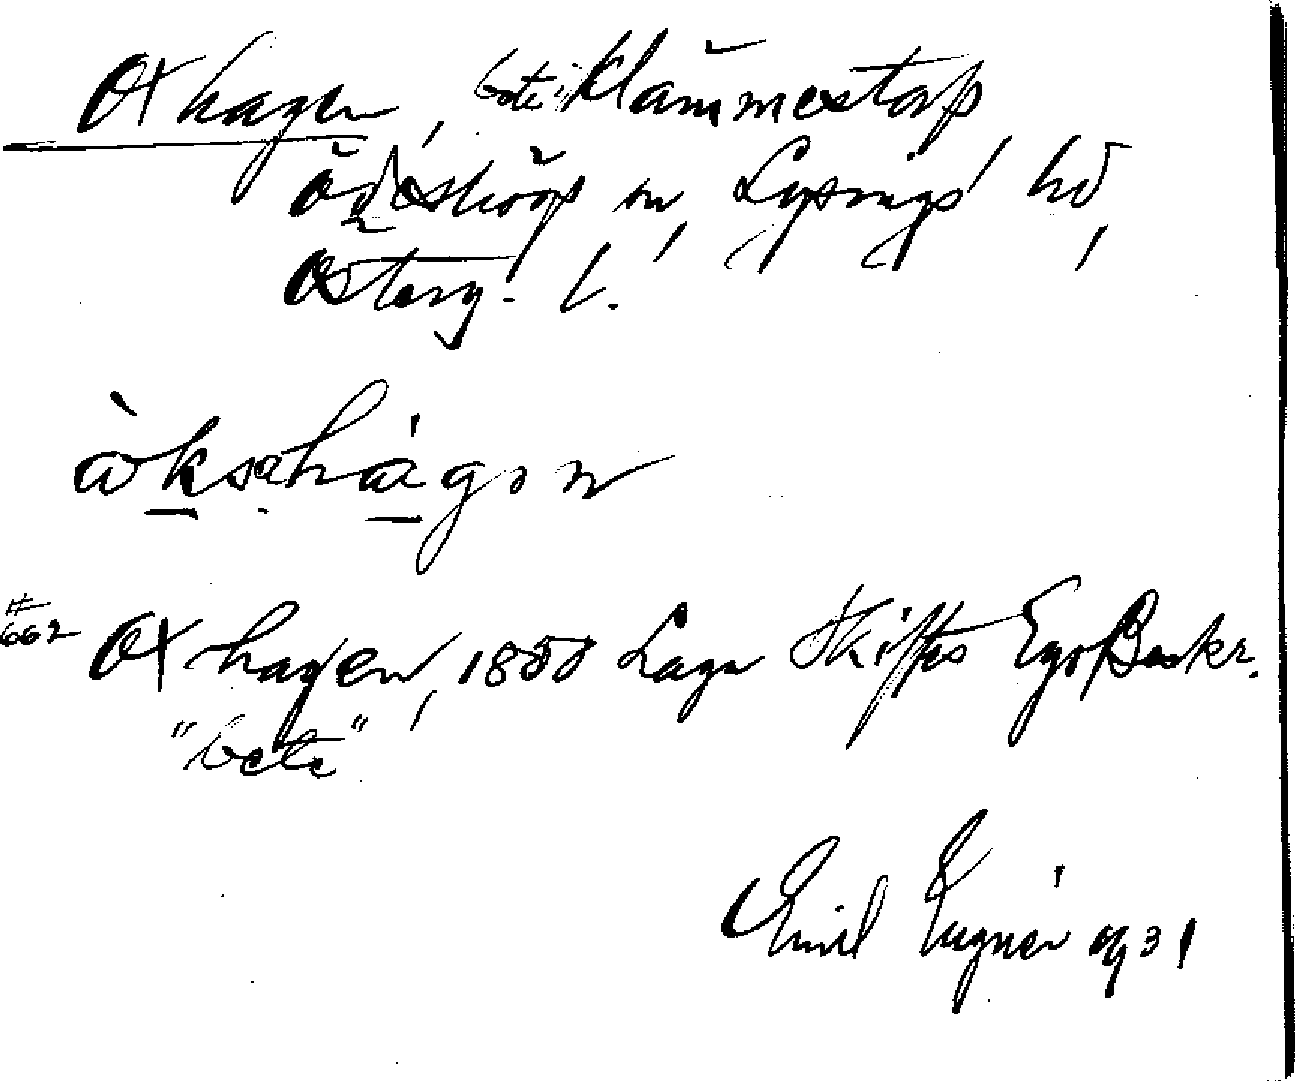 Oxhagen, bete i Klämmestorp
Ödeshögs sn, Lysings hd,
Österg. l.
Oxhagen, 1850 Laga Skiftes Ego Beskr.
662
"bete"
Emil Eugner 1931